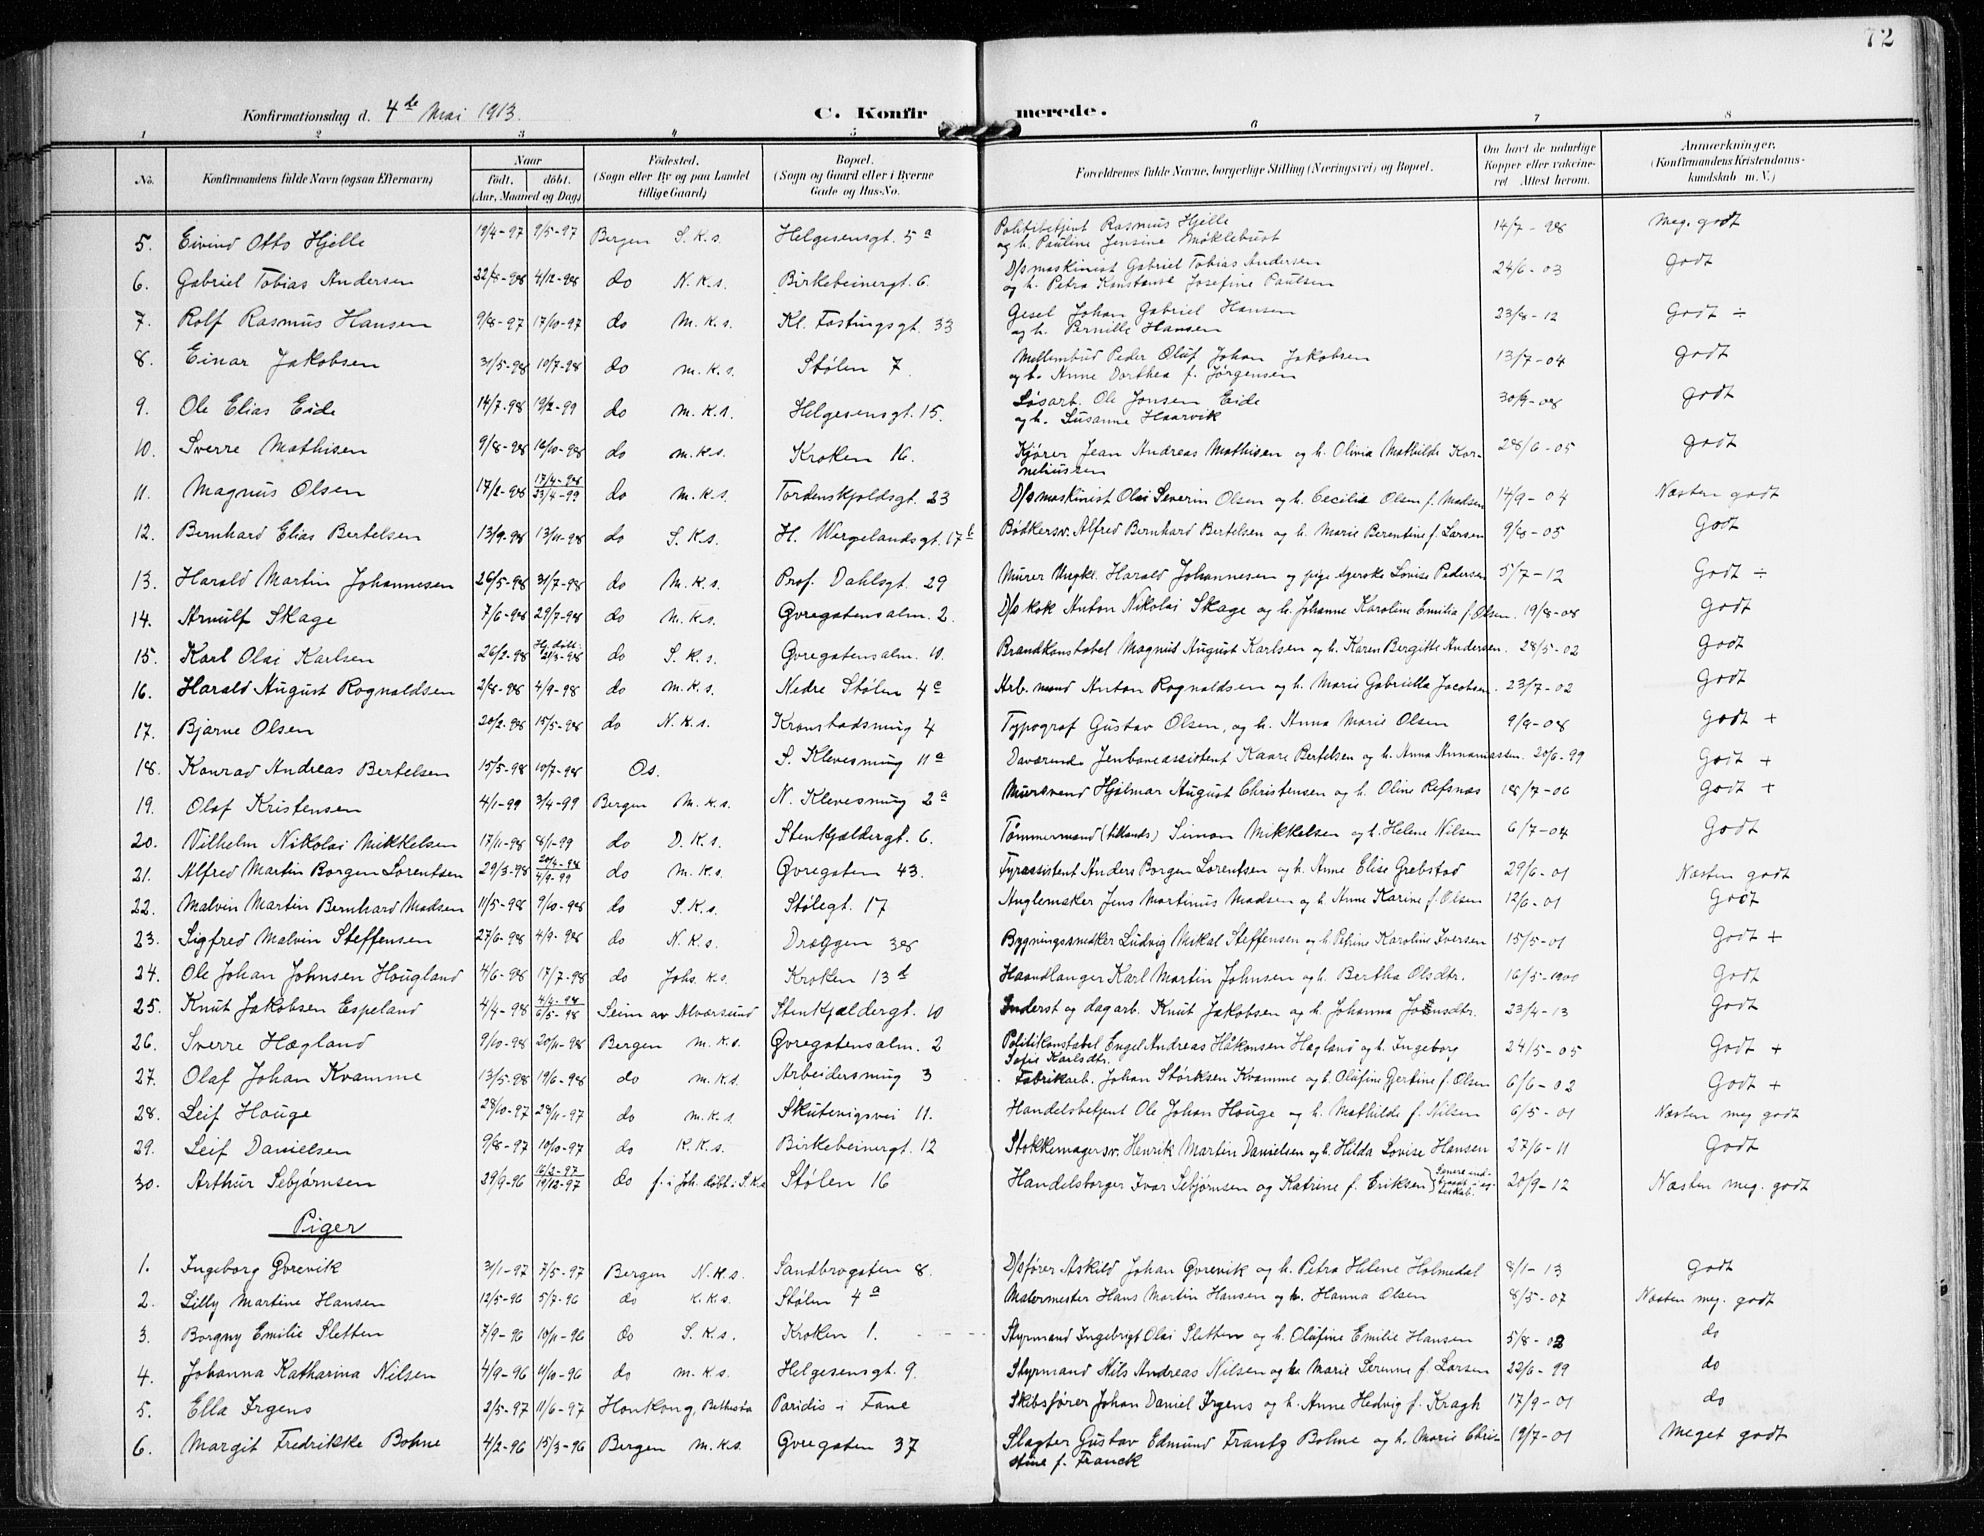 72
Konfirmationsdag d. 4de Mai 1913. C. Konfirmerede.
1 2 3 4 5 6 7 8
No. Konfirmandens fulde Navn (ogsaa Efternavn) Naar født, døbt. (Aar, Maaned og Dag) Fødested. (Sogn eller By og paa Landet tillige Gaard) Bopæl. (Sogn og Gaard eller i Byerne Gade og Hus-No. Forældrenes fulde Navne, borgerlige Stilling (Næringsvei) og Bopæl. Om havt de naturlige Kopper eller vaccineret Attest herom. Anmærkninger. (Konfirmandens Kristendomskundskab m. V.)
5. Eivind Otto Hjelle 19/4-97 9/5-97 Bergen S.K.s. Helgesensgt. 5a Politibetjent Rasmus Hjelle 14/7-98 Meg. godt
og h. Pauline Jensine Møklebust
6. Gabriel Tobias Andersen 22/8-98 4/12-98 do N.K.s. Birkebeinergt. 6. D/smaskinist Gabriel Tobias Andersen 24/6-03 Godt
og h. Petra Konstanse Josefine Paulsen
7. Rolf Rasmus Hansen 9/8-97 17/10-97 do M.K.s. Kl. Fastingsgt. 33 Gesel Johan Gabriel Hansen 23/8-12 Godt ÷
og h. Pernille Hansen
8. Einar Jakobsen 31/5-98 10/7-98 do M.K.s. Stølen 7 Mellembud Peder Oluf Johan Jakobsen 13/7-04 Godt
og h. Anne Dorthea f. Jørgensen
9. Ole Elias Eide 14/7-98 19/2-99 do M.K.s. Helgesensgt. 15. Løsarb. Ole Jonsen Eide 30/9-08 Godt
og h. Susanne Haarvik
10. Sverre Mathisen 9/8-98 16/10-98 do M.K.s. Kroken 16. Kjører Jean Andreas Mathisen og h. Olivia Mathilde Kor- 28/6-05 Godt
neliussen
11. Magnus Olsen 17/2-98 17/4-98 23/4-99 do M.K.s. Tordenskjoldsgt. 23 D/smaskinist Olai Severin Olsen og h. Cecilie Olsen f. Madsen 14/9-04 Næsten godt
12. Bernhard Elias Bertelsen 13/9-98 13/11-98 do S.K.s. H. Wergelandsgt. 17b Bødkersv. Alfred Bernhard Bertelsen og h. Marie Berentine f. Larsen 9/8-05 Godt
13. Harald Martin Johannesen 26/5-98 31/7-98 do M.K.s. Prof. Dahlsgt. 29 Murer Ungkl. Harald Johannesen og pige Lovise Pedersen 5/7-12 Godt ÷
14. Arnulf Skage 7/6-98 29/7-98 do M.K.s. Øvregatensalm. 2. D/skok Anton Nikolai Skage og h. Johanne Karoline Emilia f. Olsen. 19/8-08 Godt
15. Karl Olai Karlsen 26/2-98 Hj. døbt. 21/3-98 do S.K.s. Øvregatensalm. 10. Brandkonstabel Magnus August Karlsen og h. Karen Bergitte Andersen. 28/5-02 Godt
16. Harald August Rognaldsen 2/8-98 4/9-98 do M.K.s. Nedre Stølen 4c Arb.mand Anton Rognaldsen og h. Marie Gabriella Jacobsen. 23/7-02 Godt
17. Bjarne Olsen 20/2-98 15/5-98 do N.K.s. Kronstadsmug 4 Typograf Gustav Olsen, og h. Anna Marie Olsen 9/9-08 Godt +
18. Konrad Andreas Bertelsen 15/5-98 10/7-98 Os. S. Klevesmug 11a Daværende Jenbaneassistent Kaare Bertelsen og h. Anna Annaniassen. 20/6-99 Godt +
19. Olaf Kristensen 4/1-99 3/4-99 Bergen M.K.s. N. Klevesmug 2a Mursvend Hjalmar August Christensen og h. Oline Refsnæs 18/7-06 Godt +
20. Vilhelm Nikolai Mikkelsen 17/11-98 8/1-99 do D.K.s. Stenkjældergt. 6. Tømmermand (tillands) Simon Mikkelsen og h. Helene Nilsen 6/7-04 Godt
21. Alfred Martin Borgen Lorentsen 29/3-98 20/4-98 4/9-99 do M.K.s. Øvregaten 43. Fyrassistent Anders Borgen Lorentsen og h. Anne Elise Grebstad 29/6-01 Næsten godt
22. Malvin Martin Bernhard Madsen 11/5-98 9/10-98 do S.K.s. Stølegt. 17 Anglemaker Jens Martinus Madsen og h. Anne Karine f. Olsen 12/6-01 Godt
23. Sigfred Malvin Steffensen 27/6-98 4/9-98 do N.K.s. Dræggen 38 Bygningssnedker Ludvig Mikal Steffensen og h. Petrine Karoline Iversen 15/5-01 Godt +
24. Ole Johan Johnsen Hougland 4/6-98 17/7-98 do Johs. K.s. Kroken 13d Haandlanger Karl Martin Johnsen og h. Bertha Olsdtr. 16/5-1900 Godt
25. Knut Jakobsen Espeland 4/4-98 4/4-98 6/5-98 Seim av Alversund Stenkjældergt. 10 Inderst og dagarb. Knut Jakobsen og h. Johanna Jensdtr. 23/4-13 Godt
26. Sverre Hægland 9/10-98 20/11-98 Bergen M.K.s. Øvregatensalm. 2 Politikonstabel Engel Andreas Håkonsen Hægland og h. Ingeborg 24/5-05 Godt +
Sofie Karlsdtr.
27. Olaf Johan Kvamme 13/5-98 19/6-98 do M.K.s. Arbeidersmug 3 Fabrikarb. Johan Størksen Kvamme og h. Olufine Gjertine f. Olsen 6/6-02 Godt +
28. Leif Houge 28/10-97 28/11-97 do M.K.s. Skutevigsvei 11. Handelsbetjent Ole Johan Houge og h. Mathilde f. Nilsen 6/5-01 Næsten meg godt
29. Leif Danielsen 9/8-97 10/10-97 do K.K.s. Birkebeinergt. 12 Stokkemagersv. Henrik Martin Danielsen og h. Hilda Lovise Hansen 27/6-11 Godt
30. Arthur Sebjørnsen 29/9-96 16/2-97 19/12-97 do f. i Joh. døbt i S.K.s Stølen 16 Handelsborger Ivar Sebjørnsen og Katrine f. Eriksen 20/9-12 Næsten meg. godt
Piger
1. Ingeborg Øvrevik 3/1-97 7/5-97 Bergen N.K.s. Sandbrogaten 8. D/sfører Askild Johan Øvrevik og h. Petra Helene Holmedal 8/1-13 Godt
2. Lilly Martine Hansen 12/5-96 5/7-96 do K.K.s. Stølen 4a Malermester Hans Martin Hansen og h. Hanna Olsen 8/5-07 Næsten meg. godt
3. Borgny Emilie Sletten 7/9-96 10/11-96 do S.K.s. Kroken 1. Styrmand Ingebrigt Olai Sletten og h. Olufine Emilie Hansen 5/8-02 do
4. Johanna Katharina Nilsen 4/9-96 11/10-96 do M.K.s. Helgesensgt. 9. Styrmand Nils Andreas Nilsen og h. Marie Serenne f. Larsen 22/6-99 do
5. Ella Irgens 2/5-97 11/6-97 Honkong, Bethesta Paridis i Fane Skibsfører Johan Daniel Irgens og h. Anne Hedvig f. Kragh 17/9-01 do
6. Margit Fredrikke Bohne 4/2-96 15/3-96 Bergen M.K.s. Øvregaten 37 Slagter Gustav Edmund Frantz Bohne og h. Marie Chri- 19/7-01 Meget godt
stine f. Franck